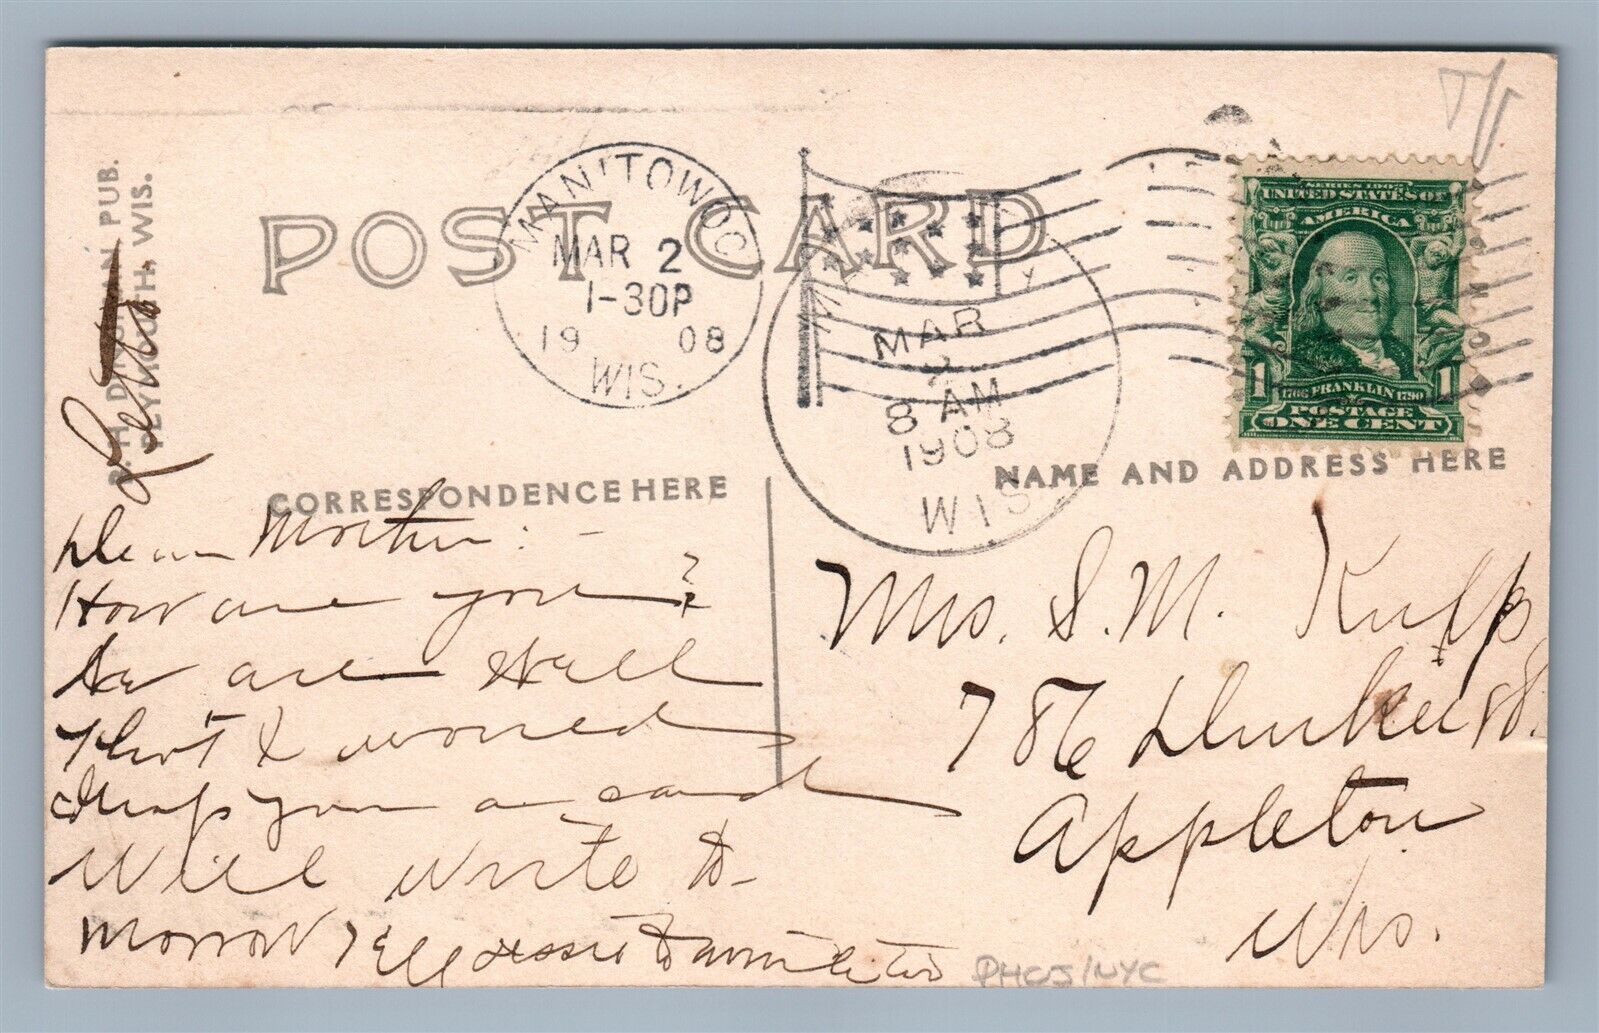 POST CARD
MANITOWOC
MAR 2
1-30P
19 08
WIS.
MAR
2
8 AM
1908
WIS.
SERIES 1902
UNITED STATES OF
AMERICA
1 1706 FRANKLIN 1790 1
POSTAGE
ONE CENT
PUB.
PLYMOUTH, WIS.
CORRESPONDENCE HERE
NAME AND ADDRESS HERE
Dear Mother:-
How are you?
We are well
Thot I would
drop you a card
Will write to-
morrow Tell Jessie to
Mrs. S. M. Kulp,
786 Durkee St.
Appleton
Wis.
PHOJ/NYC